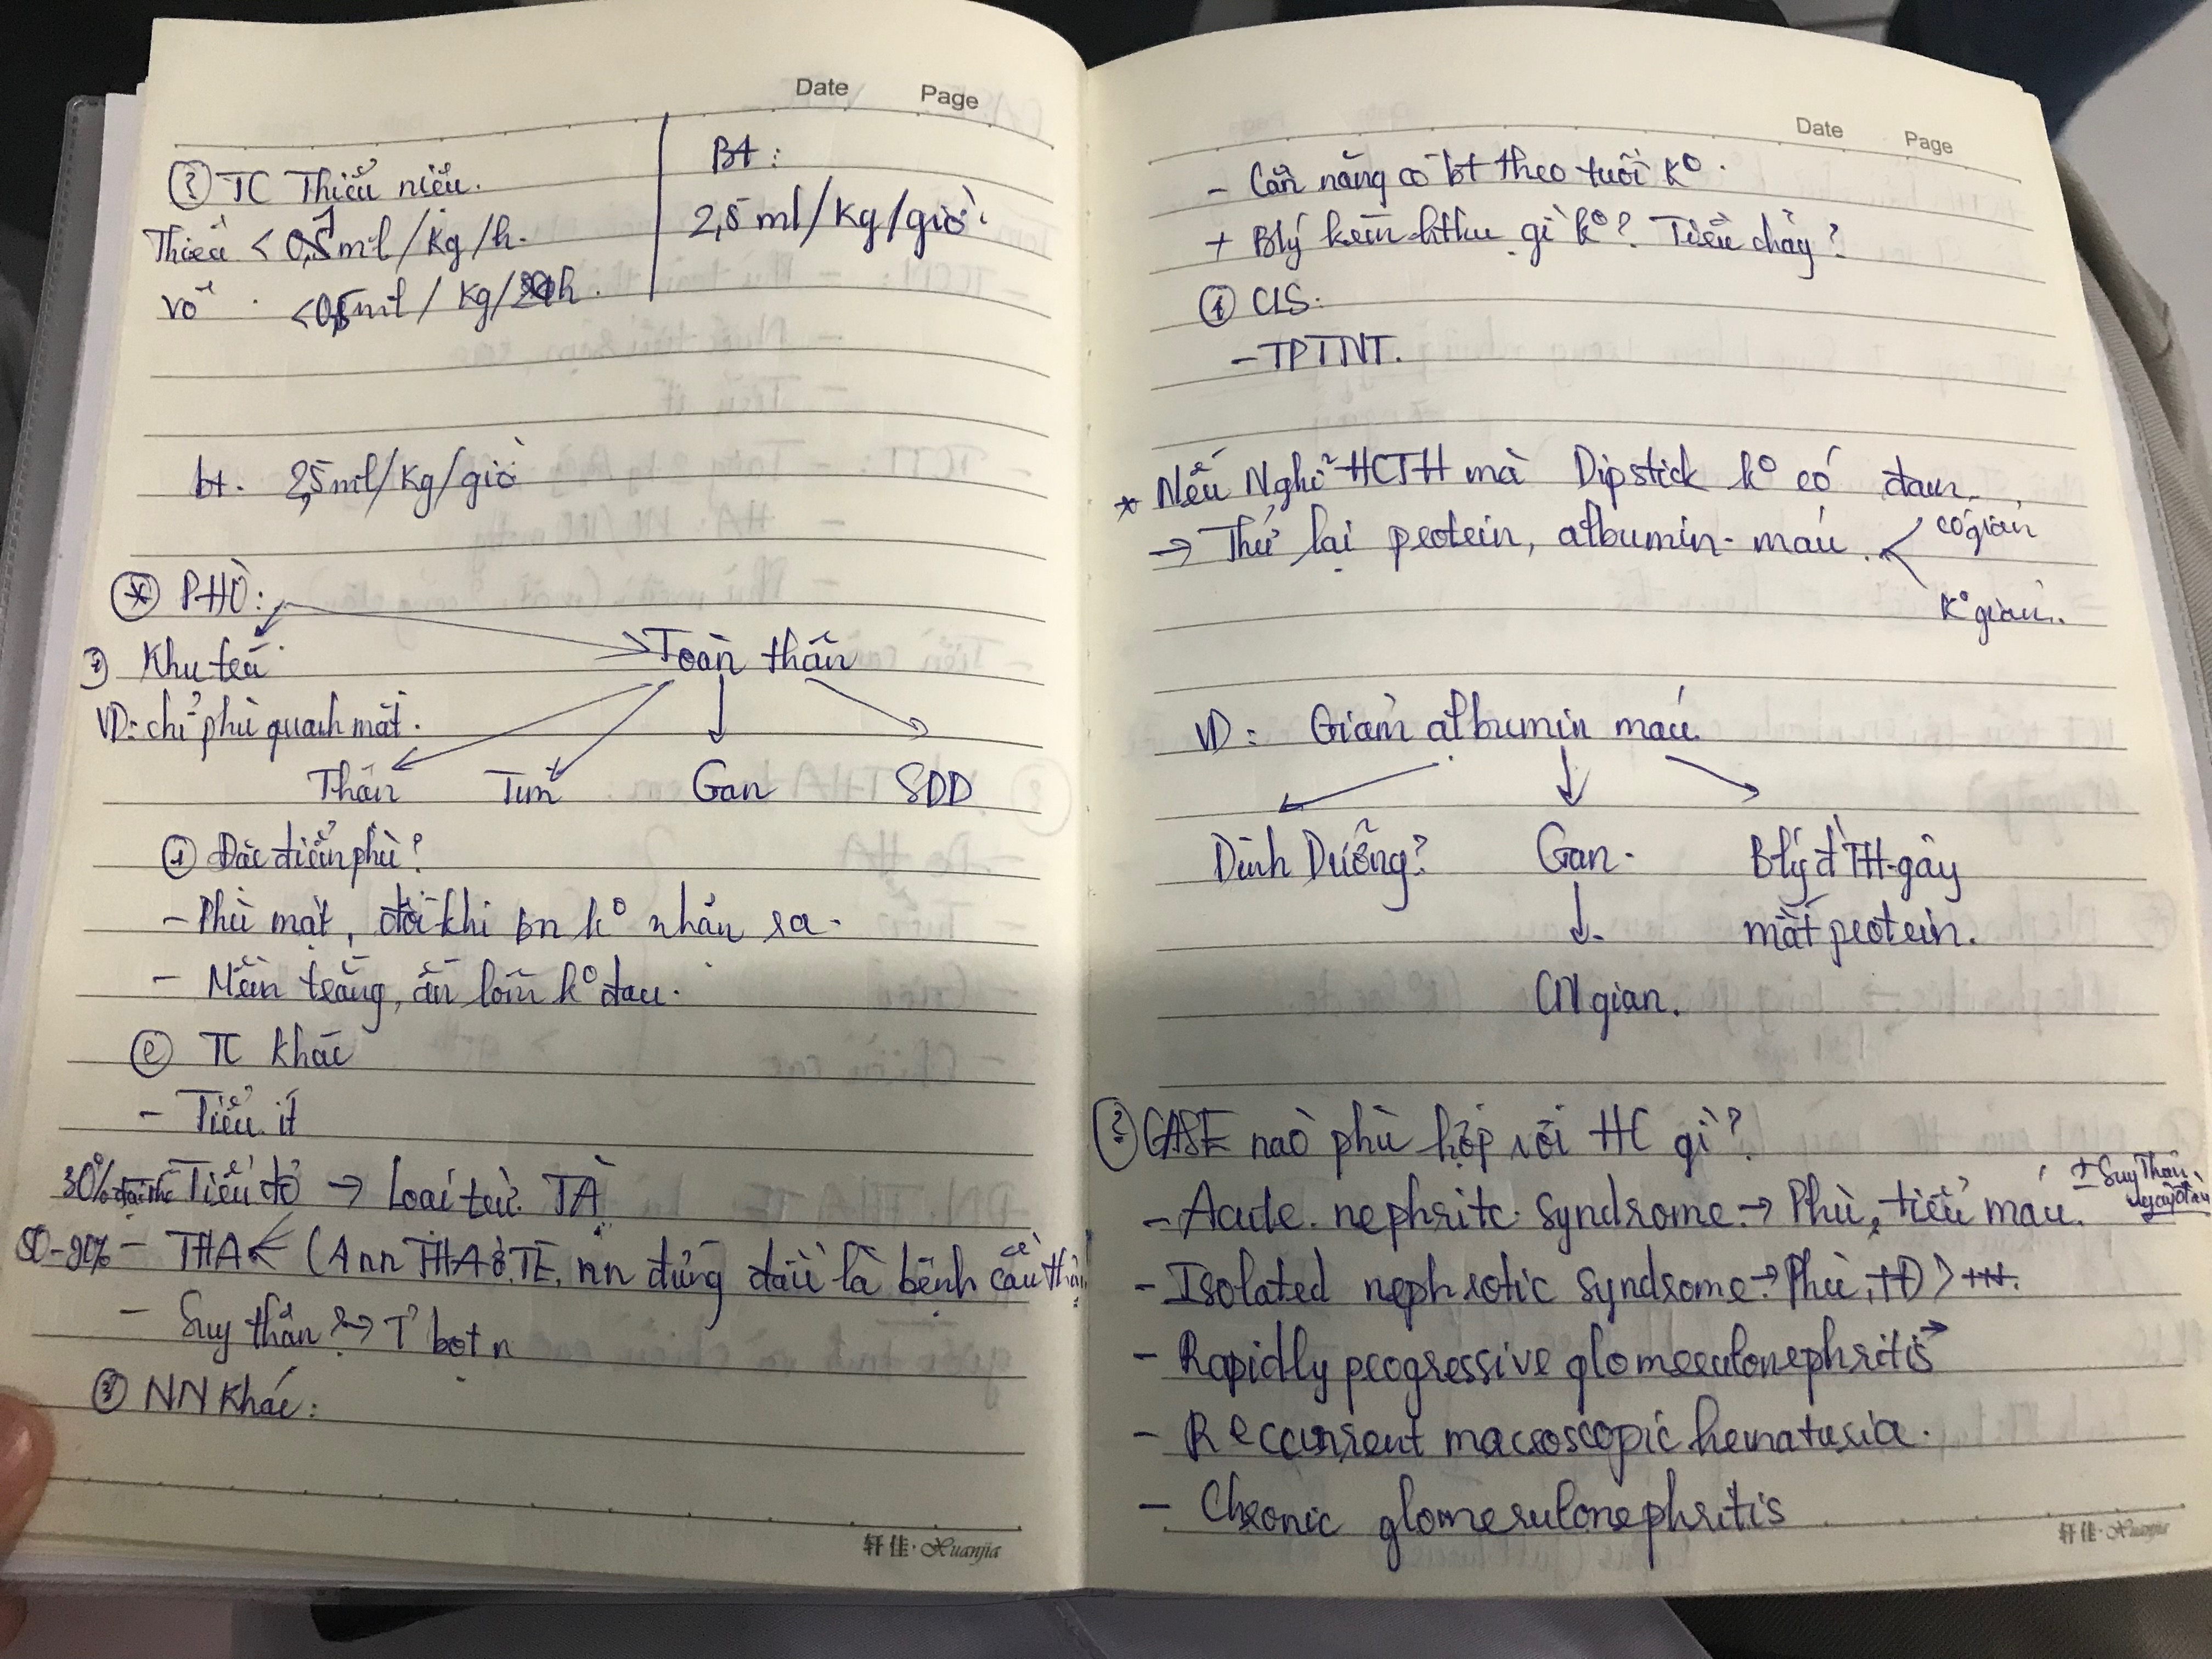 Date Page
? TC Thiểu niệu.
Thiểu < 1 ml/kg/h.
Vô < 0,5 ml/kg/h.
Bt:
2,5 ml/kg/giờ.
bt. 2,5 ml/kg/giờ
* PHÙ:
Khu trú
Toàn thân
VD: chỉ phù quanh mắt.
Thận Tim Gan SDD
1 Đặc điểm phù?
- Phù mặt, đôi khi bn k° nhận ra.
- Mềm trắng, ấn lõm k° đau.
2 TC khác
- Tiểu ít
30% đại thể Tiểu đỏ → Loại trừ TÀ
- THA (Ann THA ở TE, nn đứng đầu là bệnh cầu thận
- Suy thận
3 NN khác:
轩佳·Xuanjia
Date Page
- Cân nặng có bt theo tuổi k°.
+ Blý kèm gì k°? Tiêu chảy?
4 CLS:
- TPTNT.
* Nếu Nghĩ HCTH mà Dipstick k° có đạm.
→ Thử lại protein, albumin máu.
có giảm
k° giảm.
VD: Giảm albumin máu
Dinh Dưỡng? Gan. Blý đ TH gây
mất protein.
CN gan.
? CASE nào phù hợp với HC gì?
- Acute nephritic syndrome → Phù, tiểu máu. ± Suy Thận
- Isolated nephrotic syndrome → Phù, TĐ > +++.
- Rapidly progressive glomerulonephritis →
- Reccurrent macroscopic hematuria.
- Chronic glomerulonephritis
轩佳·Xuanjia